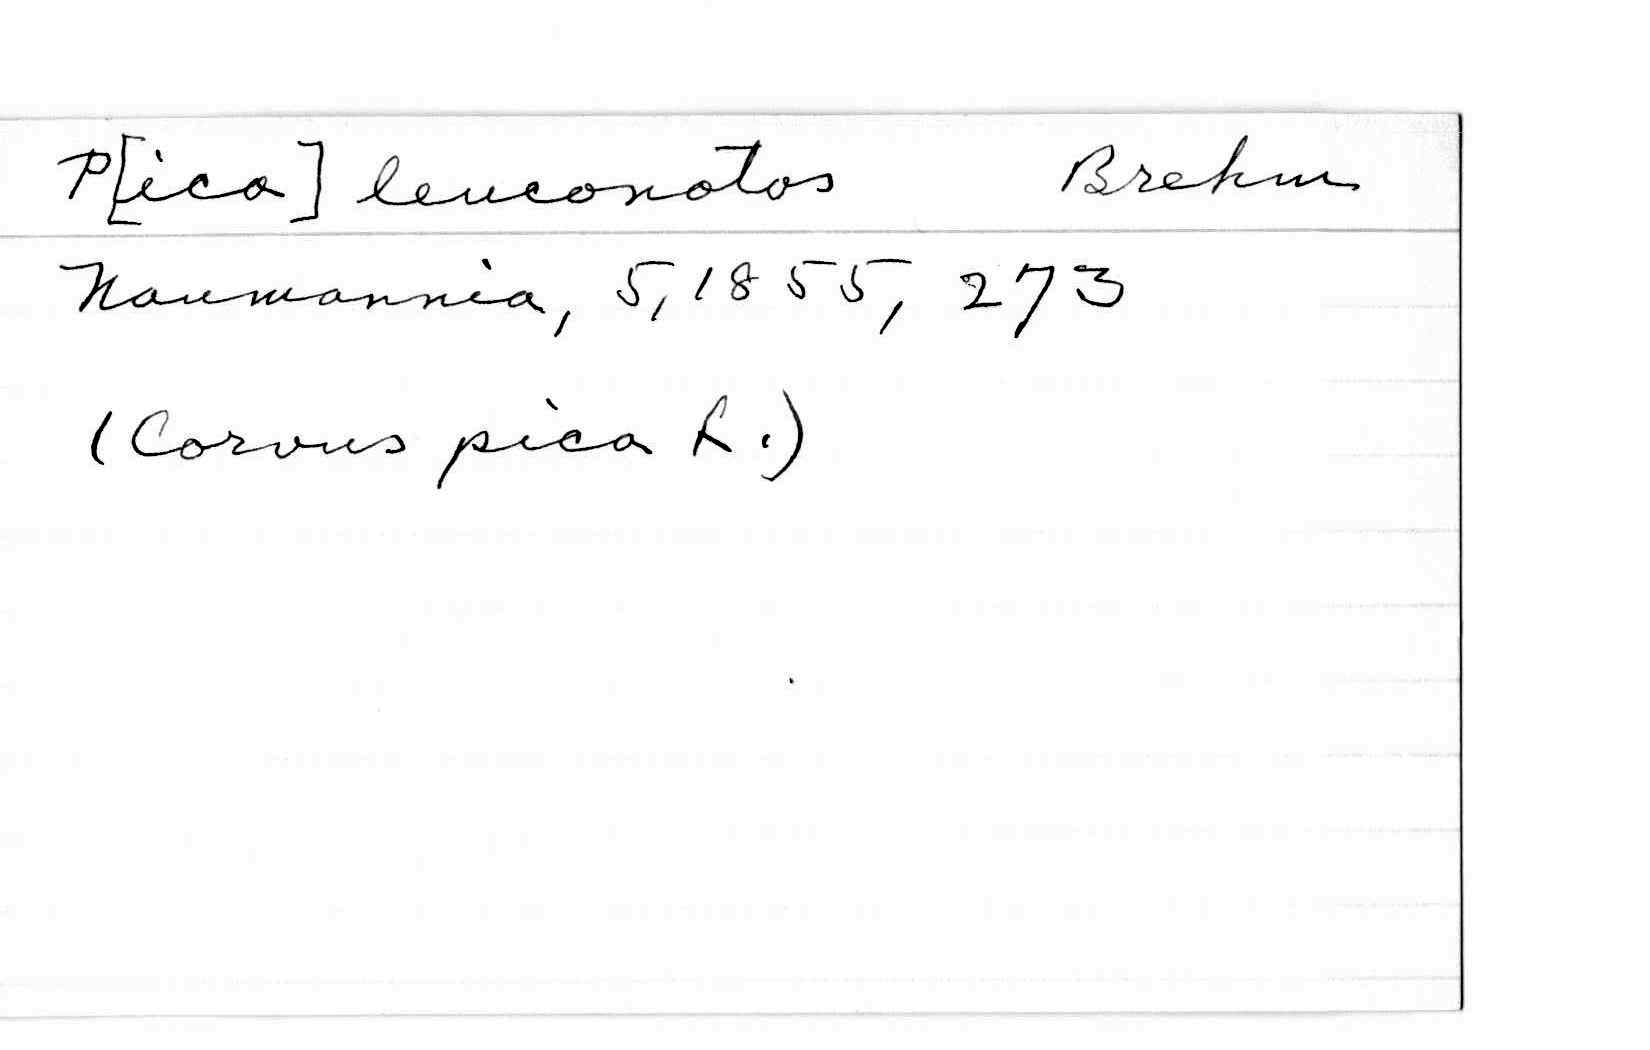 P[ica] leuconotos Brehm
Naumannia, 5, 1855, 273
(Corvus pica L.)